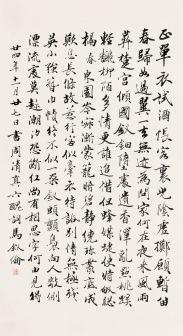 正單衣試酒悵客裏光陰虛擲願暫留
春歸如過翼一去無迹為問家何在夜來風雨
葬楚宮傾國釵鈿墮處遺香澤亂點桃蹊
輕翻柳陌多情更誰追惜但蜂媒蝶使時叩窗
槅東園岑寂漸蒙籠暗碧靜繞珍叢底成
歎息長條故惹行客似牽衣待話別情無極殘
英小強簪巾幘終不似一朵釵頭顫裊向人欹側
漂流處莫趁潮汐恐斷紅尚有相思字何由見得
廿四年十一月廿七日書周清真六醜詞馬敘倫